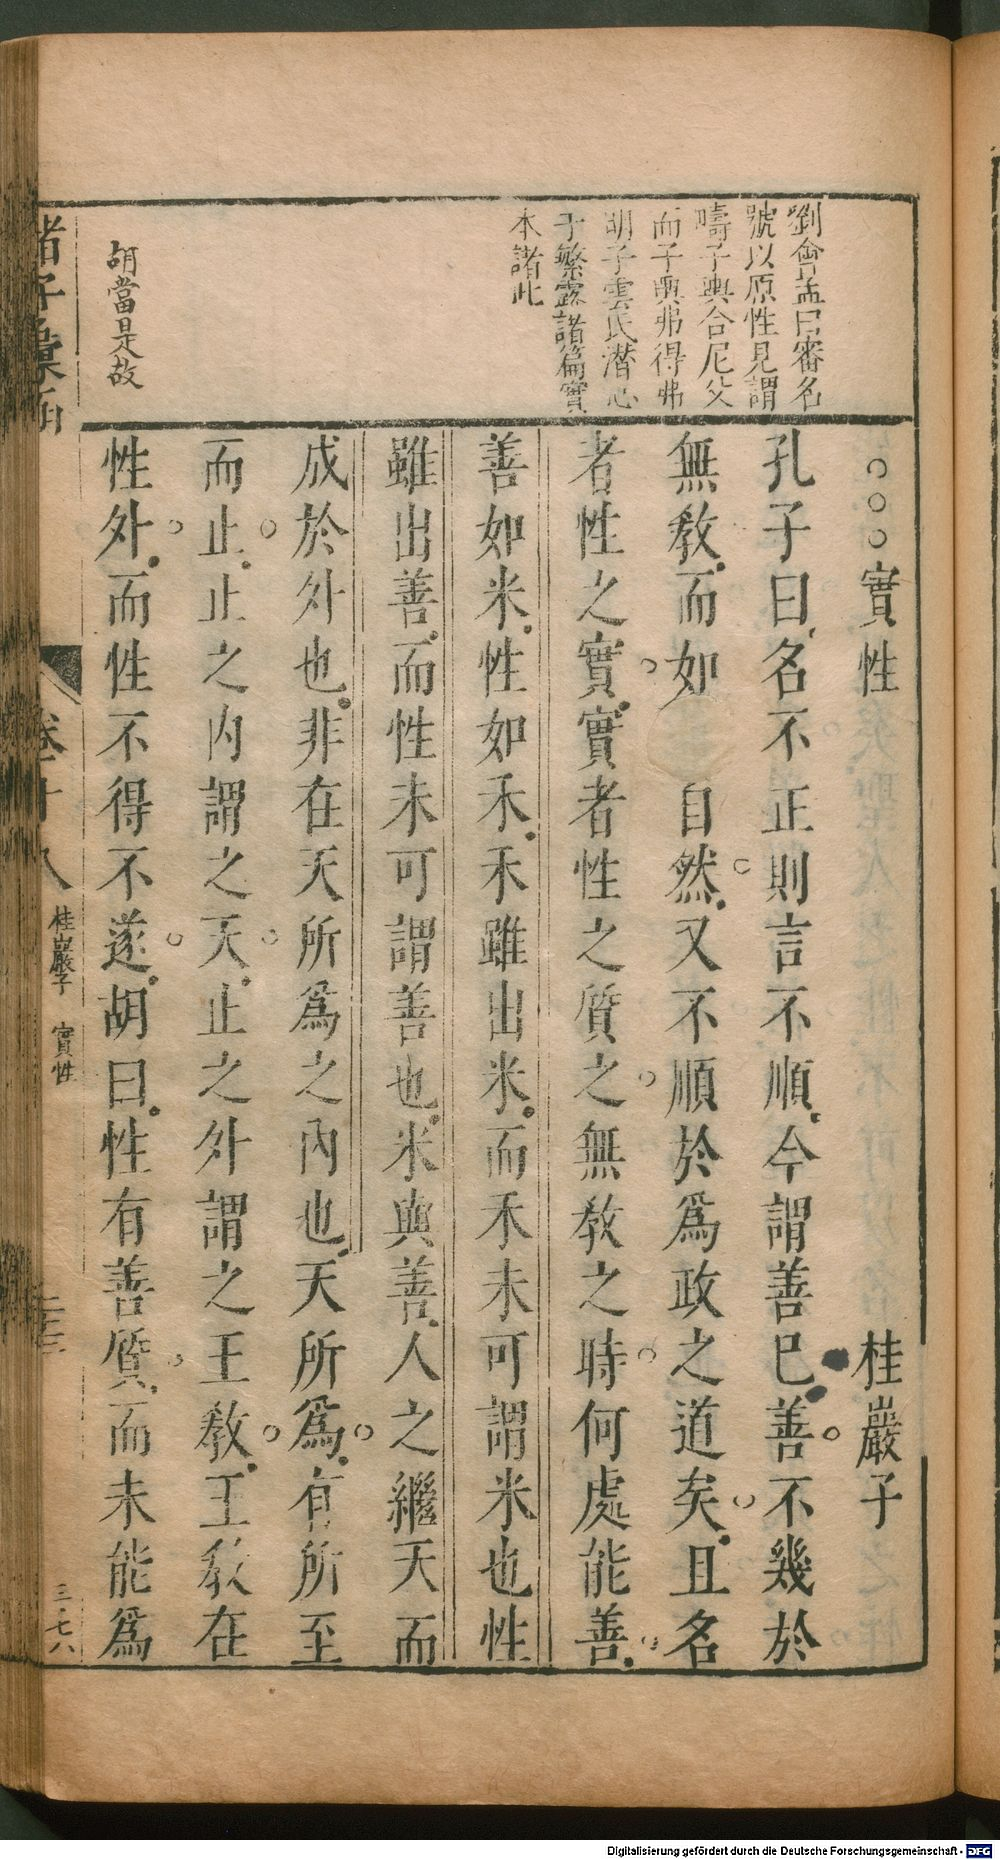 劉會孟曰審名
號以原性見謂
疇子輿合尼父
而子輿弗得弗
胡子雲氏潛心
于繁露諸篇實
本諸此
胡當是故
○○○實性 桂巖子
孔子曰名不正則言不順今謂善巳善不幾於
無教而如 自然又不順於爲政之道矣且名
者性之實實者性之質之無教之時何處能善
善如米性如禾禾雖出米而禾未可謂米也性
雖出善而性未可謂善也米與善人之繼天而
成於外也非在天所爲之內也天所爲有所至
而止止之內謂之天止之外謂之王教王教在
性外而性不得不遂胡曰性有善質而未能爲
諸子彙函
卷十八
桂巖子 實性
二十三
三七八
Digitalisierung gefördert durch die Deutsche Forschungsgemeinschaft - DFG